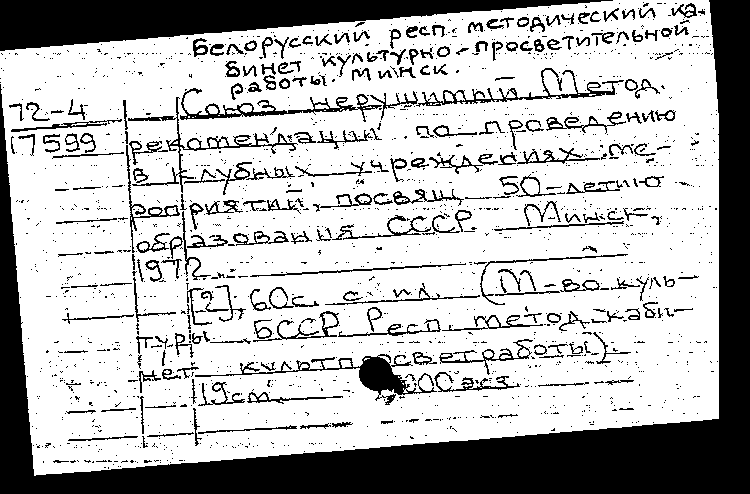 Белорусский респ. методический ка-
бинет культурно-просветительной
работы. Минск.
72-4
17599
Союз нерушимый. Метод.
рекомендации по проведению
в клубных учреждениях ме-
роприятий, посвящ. 50-летию
образования СССР. Минск,
1972.
[2], 60с. с ил. (М-во куль-
туры БССР. Респ. метод. каби-
нет культпросветработы).
19см. 000 экз.